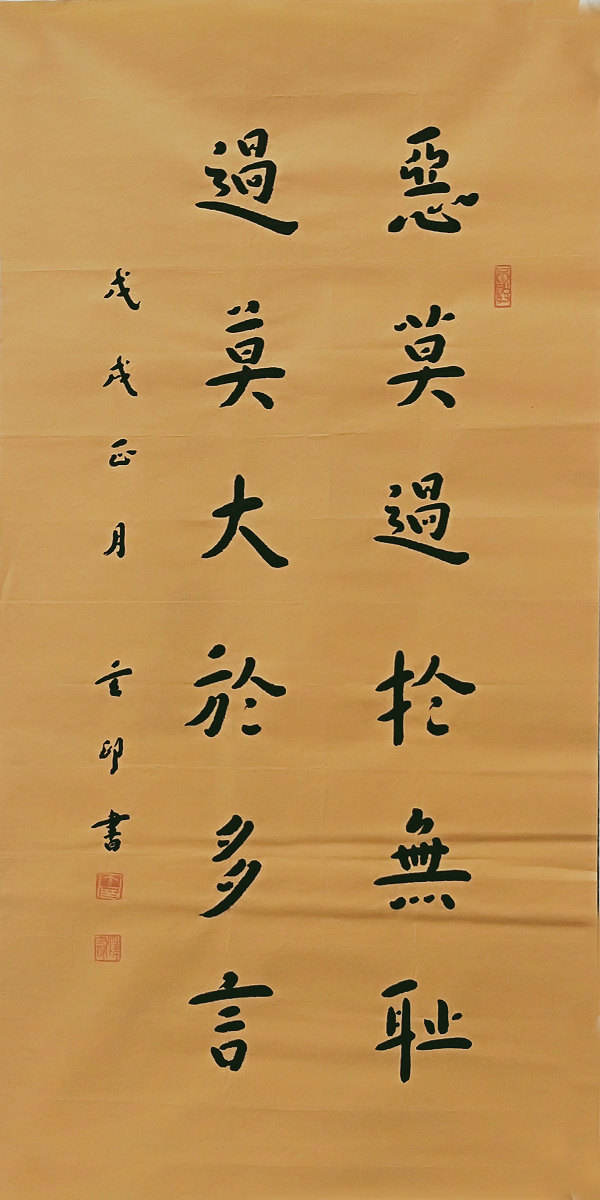 惡莫過扵無耻
過莫大於多言
戊戌正月 玄印書